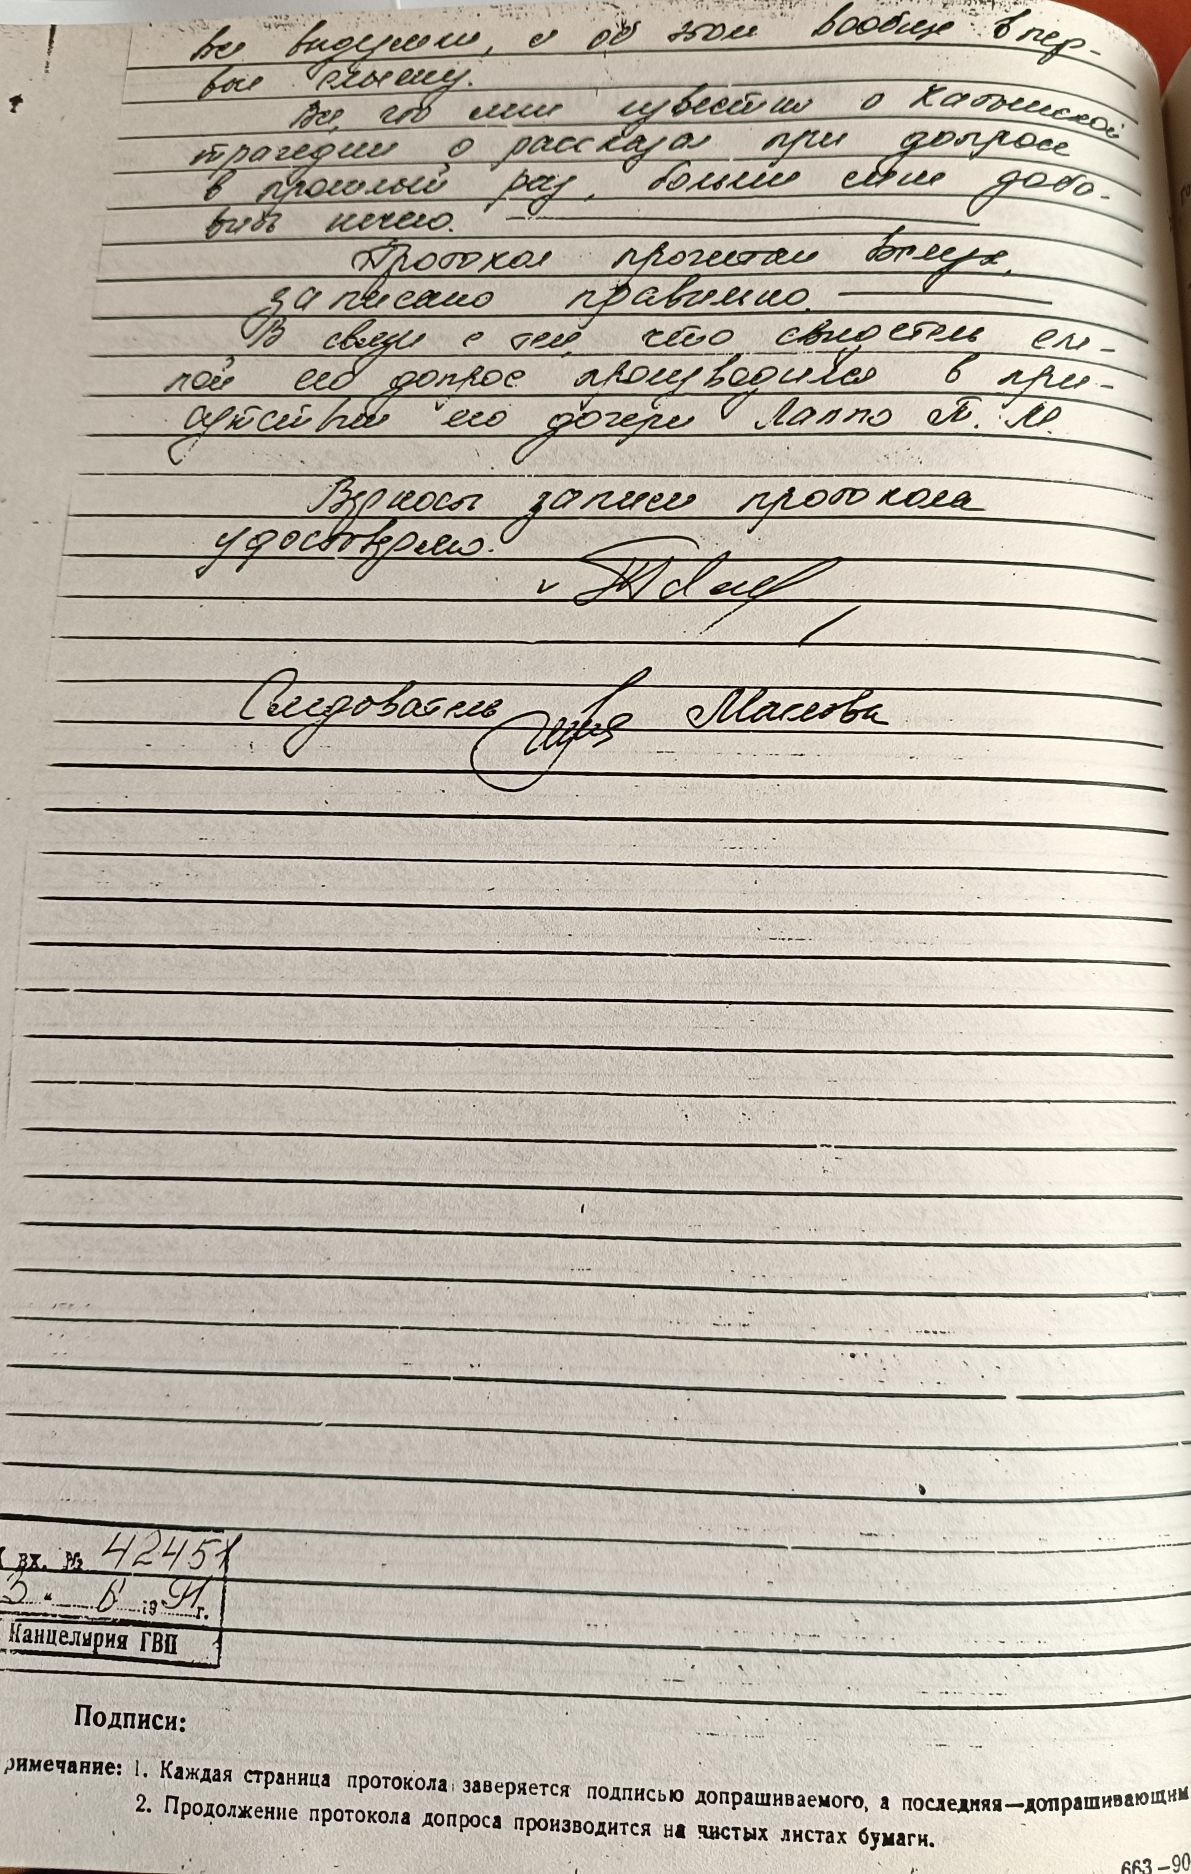 все видели, и об этом вообще впер-
вые слышу.
Все, что мне известно о Катынской
трагедии я рассказал при допросе
в прошлый раз, больше мне доба-
вить нечего.
Протокол прочитан вслух,
записано правильно.
В связи с тем, что свидетель сле-
пой его допрос производился в при-
сутствии его дочери Лаппо Т. М.
Верность записи протокола
удостоверяю.
Следователь Маслова
вх. № 42451
3 " 6 1991 г.
Канцелярия ГВП
Подписи:
римечание: 1. Каждая страница протокола заверяется подписью допрашиваемого, а последняя—допрашивающим
2. Продолжение протокола допроса производится на чистых листах бумаги.
663-90